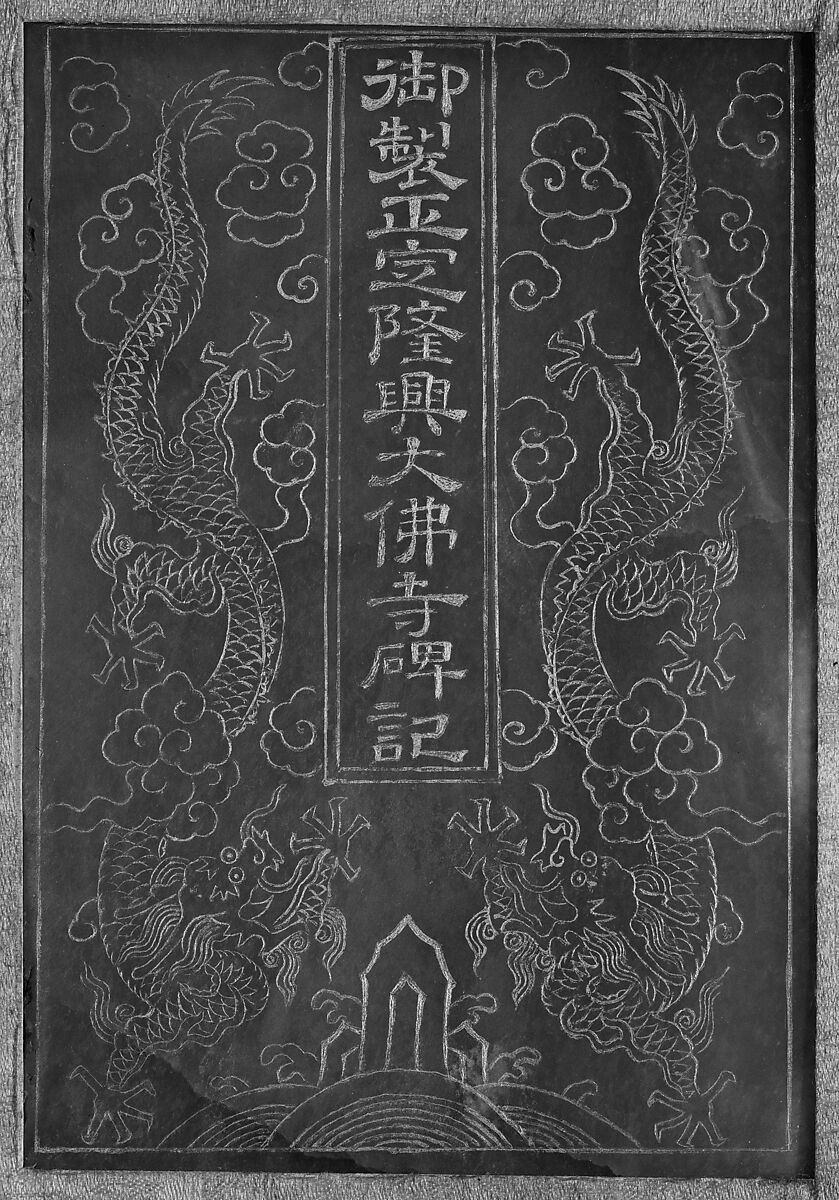 御製正定隆興大佛寺碑記